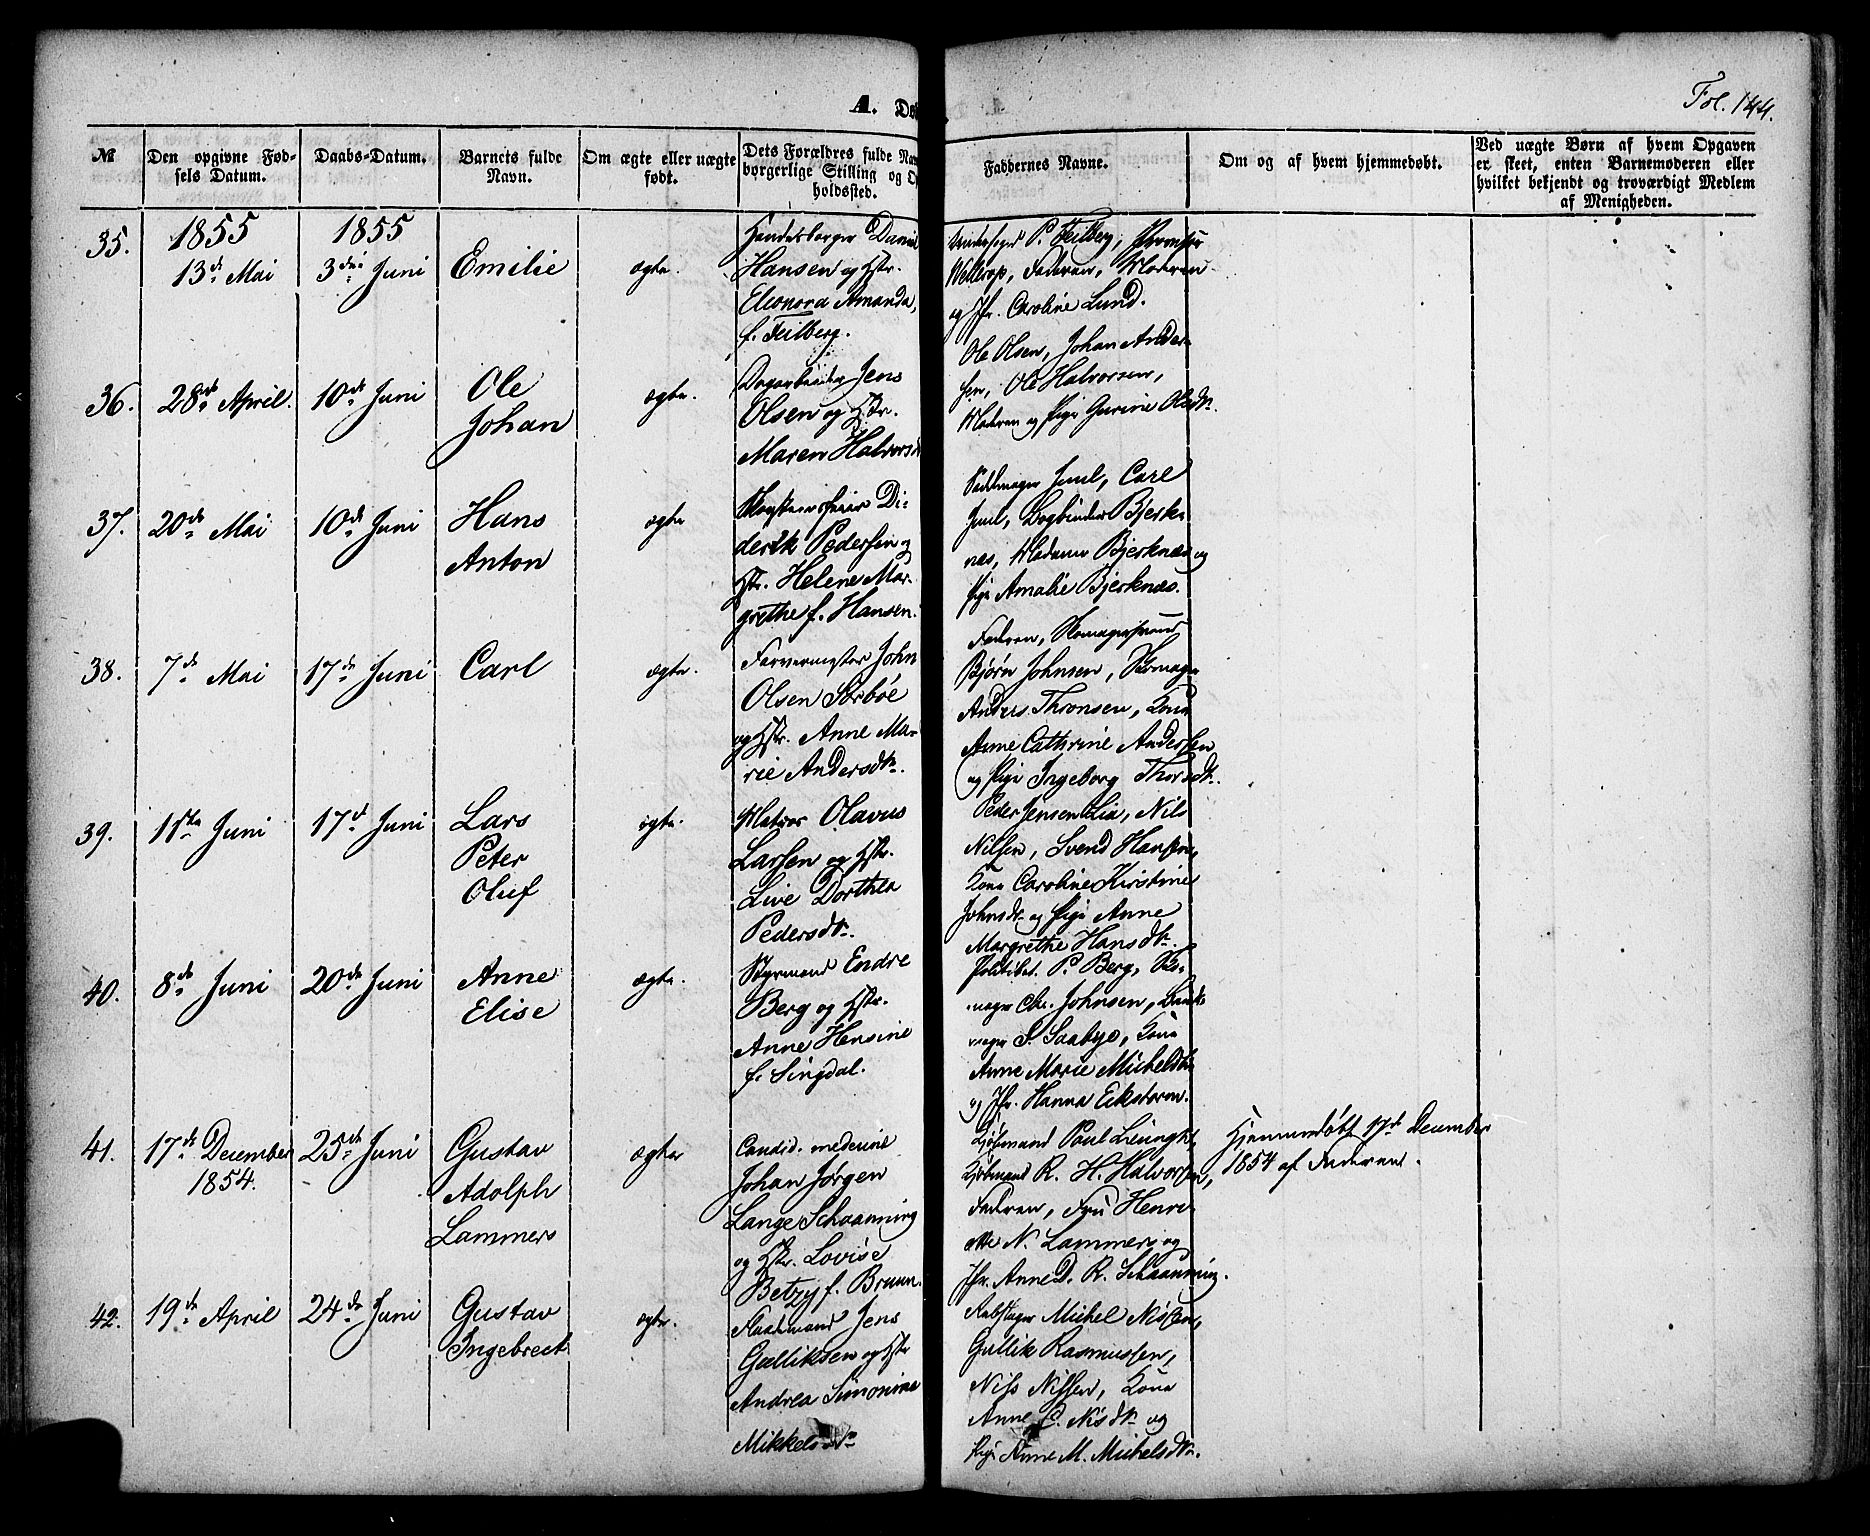 A. Dø
Fol. 144.
№
Den opgivne Fød-
sels Datum.
Daabs-Datum.
Barnets fulde
Navn.
Om ægte eller uægte
født.
Dets Forældres fulde Nav
borgerlige Stilling og O
holdssted.
Faddernes Navne.
Om og af hvem hjemmedøbt.
Ved uægte Børn af hvem Opgaven
er skeet, enten Barnemoderen eller
hvilket bekjendt og troværdigt Medlem
af Menigheden.
35.
1855
13d. Mai
1855
3die Juni
Emilie
ægte.
Handelsborger Daniel
Hansen og Hstr.
Eleonora Amanda,
f. Feilberg.
P. Feilberg,
Welltrop, Faderen, Moderen
og Jfr. Caroline Lund.
36.
28de April.
10de Juni
Ole
Johan
ægte.
Dagarbeider Jens
Olsen og Hstr.
Maren Halvorsd
Ole Olsen, Johan Ander-
sen, Ole Halvorsen,
Moderen og Pige Gurine Olsdtr.
37.
20de Mai
10de Juni
Hans
Anton
ægte
Skorsteensfeier Di-
derik Pedersen og
Hstr. Helene Mar-
grethe f. Hansen.
Sadelmager Juul, Carl
Juul, Bogbinder Bjerk-
næs, Madame Bjerknæs og
Pige Amalie Bjerknæs.
38.
7de Mai
17de Juni
Carl
ægte.
Farvermester John
Olsen Sørbøe
og Hstr. Anne Ma-
rie Andersdtr.
Faderen, Skomagersvend
Bjørn Johnsen, Skomager
Anders Thronsen, Kone
Anne Cathrine Andersen
og Pige Ingeborg Thorsdtr.
39.
11te Juni
17de Juni
Lars
Peter
Oluf
ægte.
Matros Olavus
Larsen og Hstr.
Live Dorthea
Pedersdtr.
Peder Jensen Lia, Nils
Nilsen, Svend Hansen,
Kone Caroline Kirstine
Johnsdtr. og Pige Anne
Margrethe Hansdtr.
40.
8de Juni
20de Juni
Anne
Elise
ægte.
Styrmand Endre
Berg og Hstr.
Anne Hensine
f. Lingdal.
Politibet. P. Berg, Sko-
mager Chr. Johnsen,
mager S. Saabye, Kone
Anne Marie Michelsdtr
og Jfr. Hanna Eckstorm.
41.
17de December
1854.
25de Juni
Gustav
Adolph
Lammers
ægte
Candid. medicine
Johan Jørgen
Lange Schaanning
og Hstr. Lovise
Betzy f. Bruun.
Kjøbmand Paul
Kjøbmand R. H. Halvorsen,
Faderen, Fru Henri-
ette N. Lammers og
Jfr. Anne D. R. Schaanning.
Hjemmedøbt 17de December
1854 af Faderen.
42.
19de April
24de Juni
Gustav
Ingebrect
ægte.
Flaademand Jens
Gulliksen og Hstr
Andrea Simonine
Mikkelsdtr
Michel Nilsen,
Gullik Rasmussen,
Nils Nilsen, Kone
Anne C. Nilsdtr og
Pige Anne M. Michelsdtr.